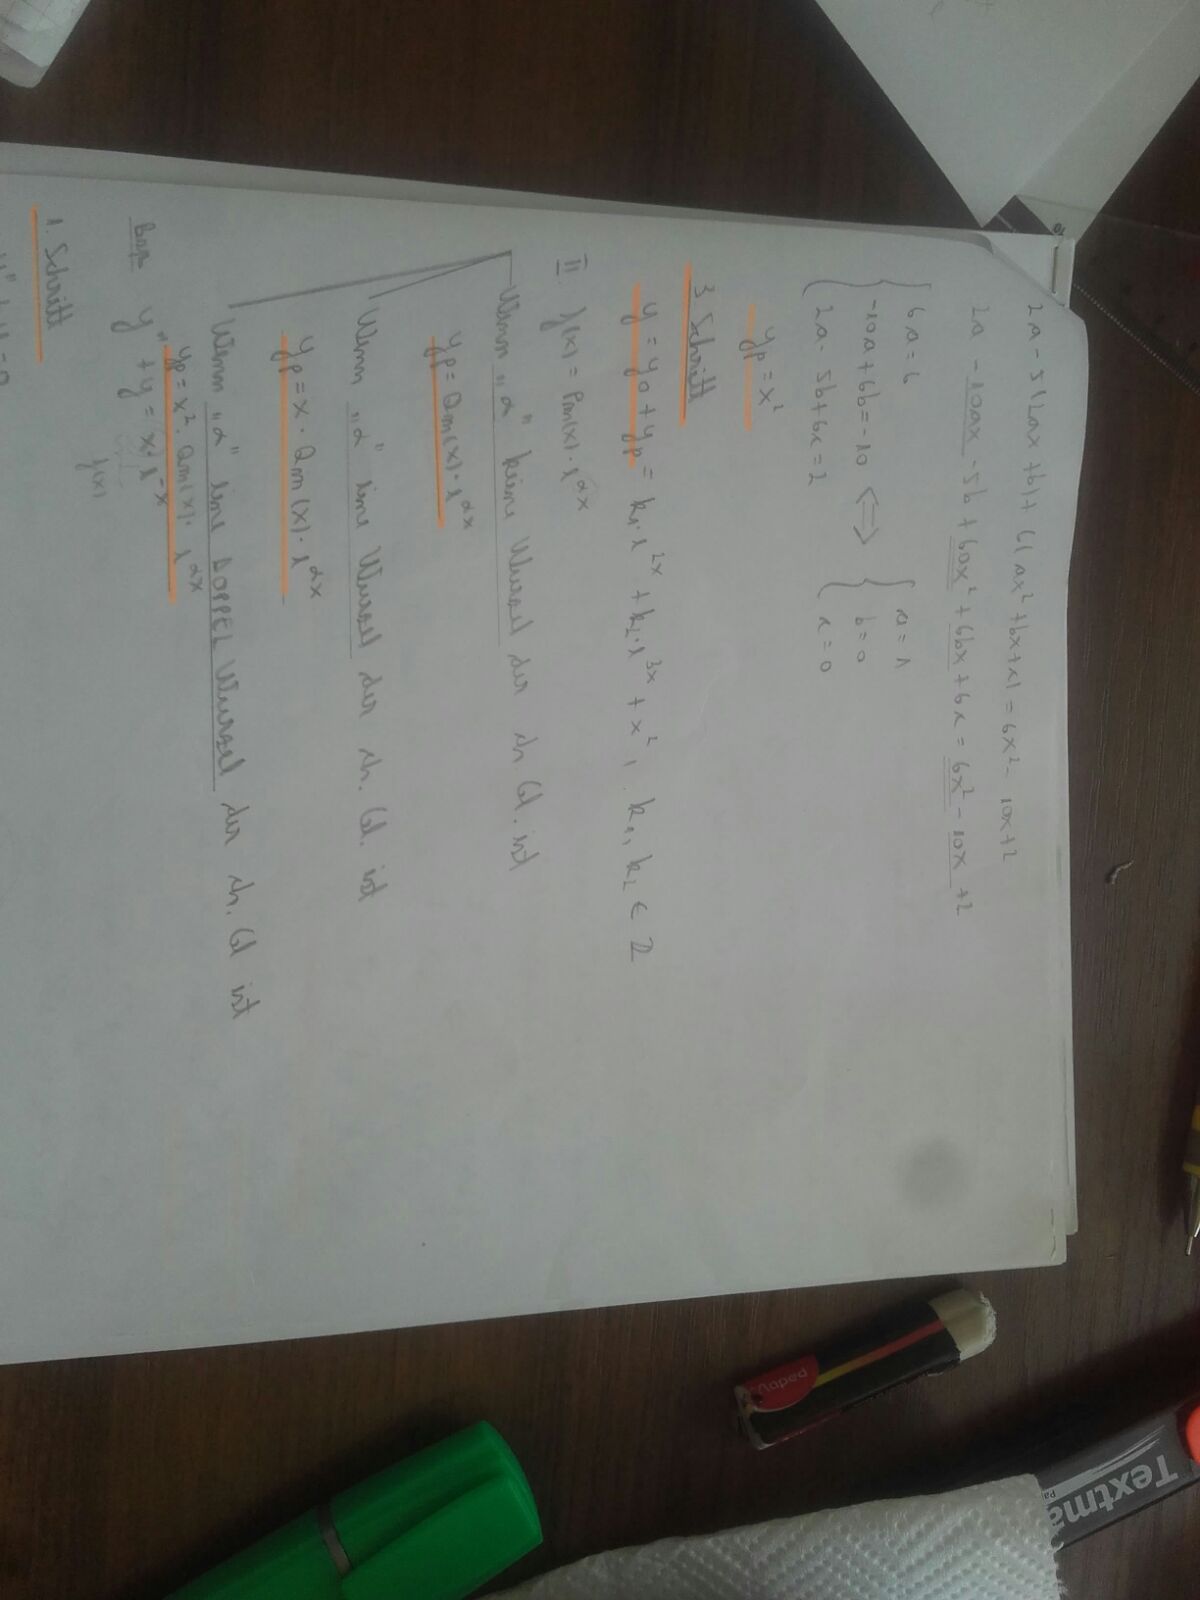 2a - 5(2ax + b) + 6(ax² + bx + c) = 6x² - 10x + 2
2a - 10ax - 5b + 6ax² + 6bx + 6c = 6x² - 10x + 2
6a = 6
-10a + 6b = -10
2a - 5b + 6c = 2
⇔
a = 1
b = 0
c = 0
yp = x²
3. Schritt
y = y0 + yp = k1·e^2x + k2·e^3x + x², k1, k2 ∈ ℤ
II. f(x) = Pm(x)·e^αx
Wenn „α" keine Wurzel der ch Gl. ist
yp = Qm(x)·e^αx
Wenn „α" eine Wurzel der ch. Gl. ist
yp = x · Qm(x)·e^αx
Wenn „α" eine DOPPEL Wurzel der ch. Gl ist
yp = x²·Qm(x)·e^αx
Bsp. y" + y = x·e^-x
f(x)
1. Schritt
Textma
Pa
Naped